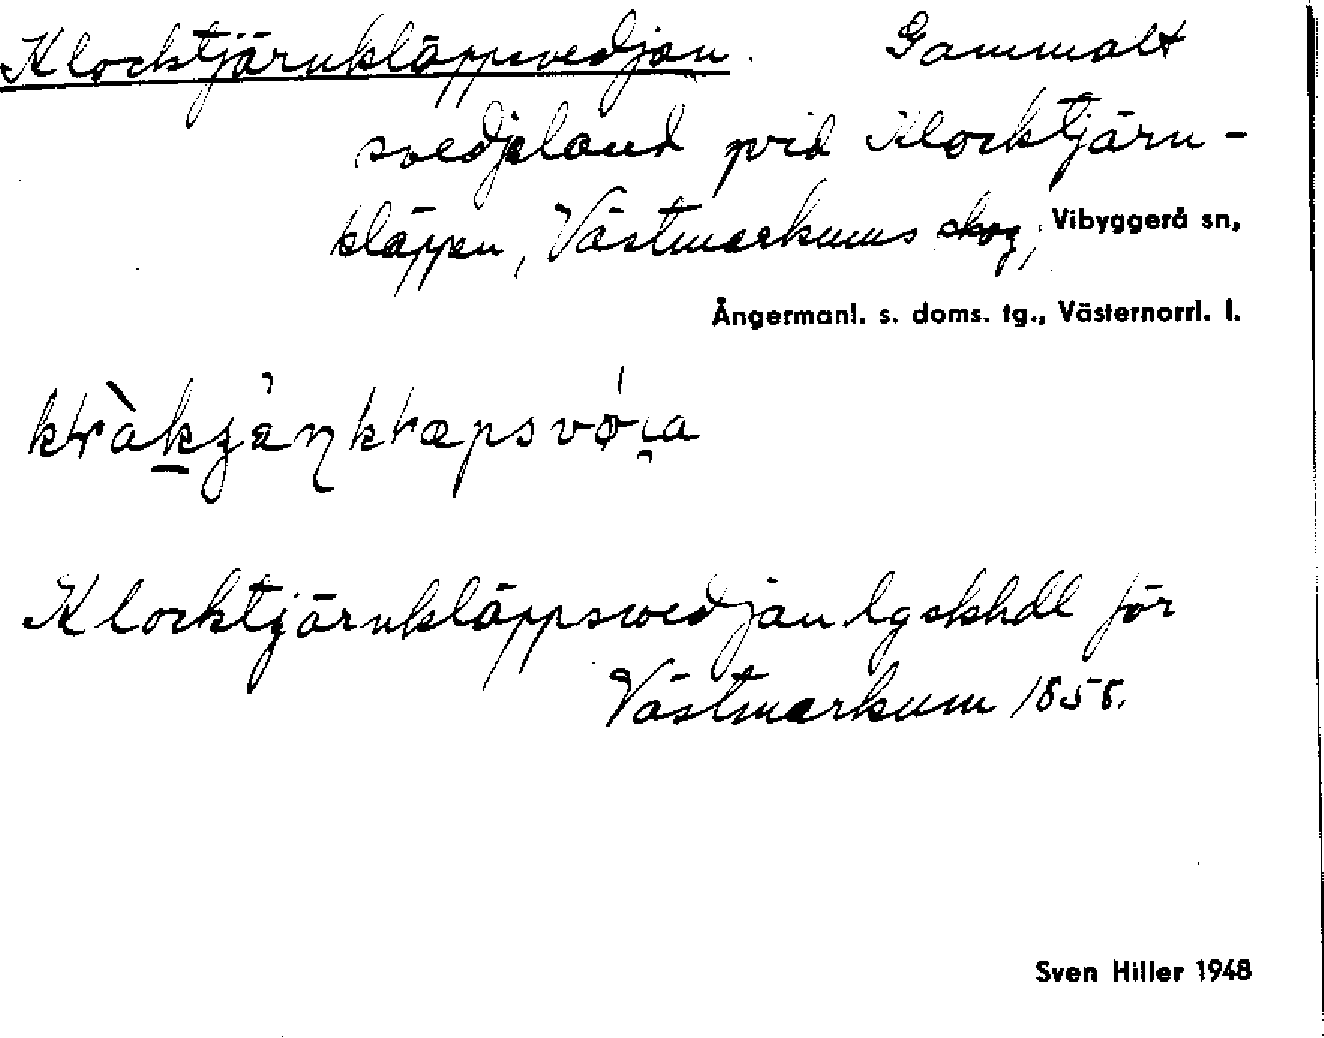 Klocktjärnkläppsvedjan. Gammalt
svedjeland vid Klocktjärn-
kläppen, Västmarkums skog, Vibyggerå sn,
Ångermanl. s. doms. tg., Västernorrl. l.
Klocktjärnkläppsvedjan lgskhdl för
Västmarkum 1858.
Sven Hiller 1948